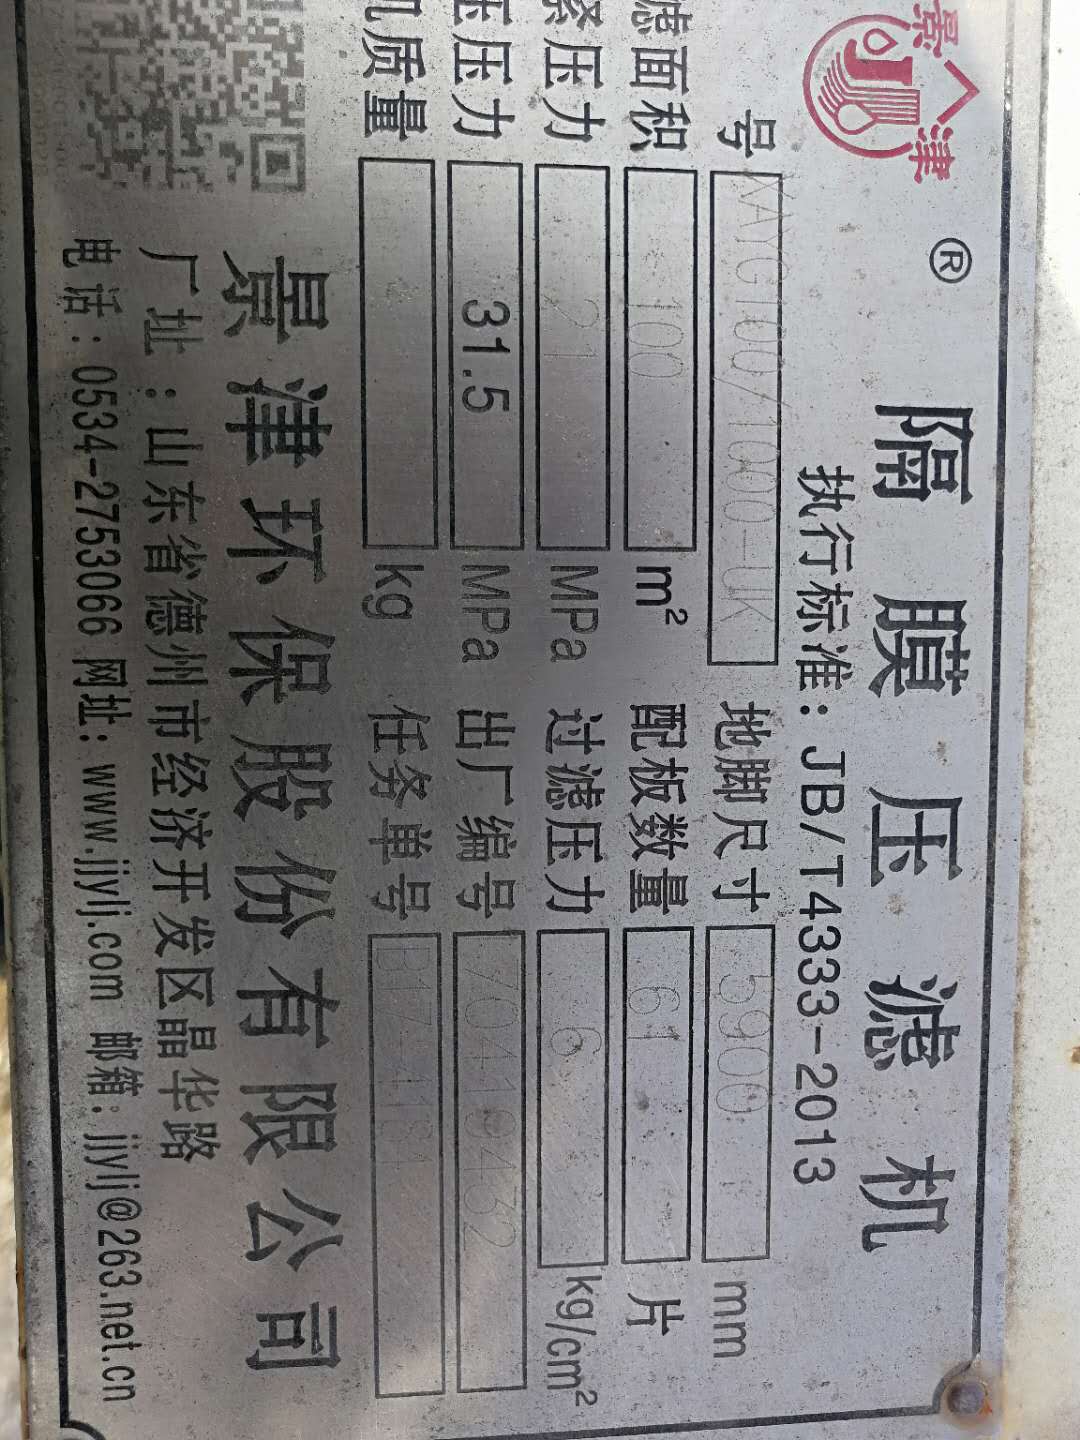 景津
®
隔膜压滤机
执行标准：JB/T4333-2013
号 XAYG100/1000-UK 地脚尺寸 5900 mm
滤面积 100 m² 配板数量 61 片
压力 21 MPa 过滤压力 6 kg/cm²
压压力 31.5 MPa 出厂编号 70419432
机质量 kg 任务单号
景津环保股份有限公司
厂址：山东省德州市经济开发区晶华路
电话：0534-2753066 网址：www.jjylj.com 邮箱：jjylj@263.net.cn